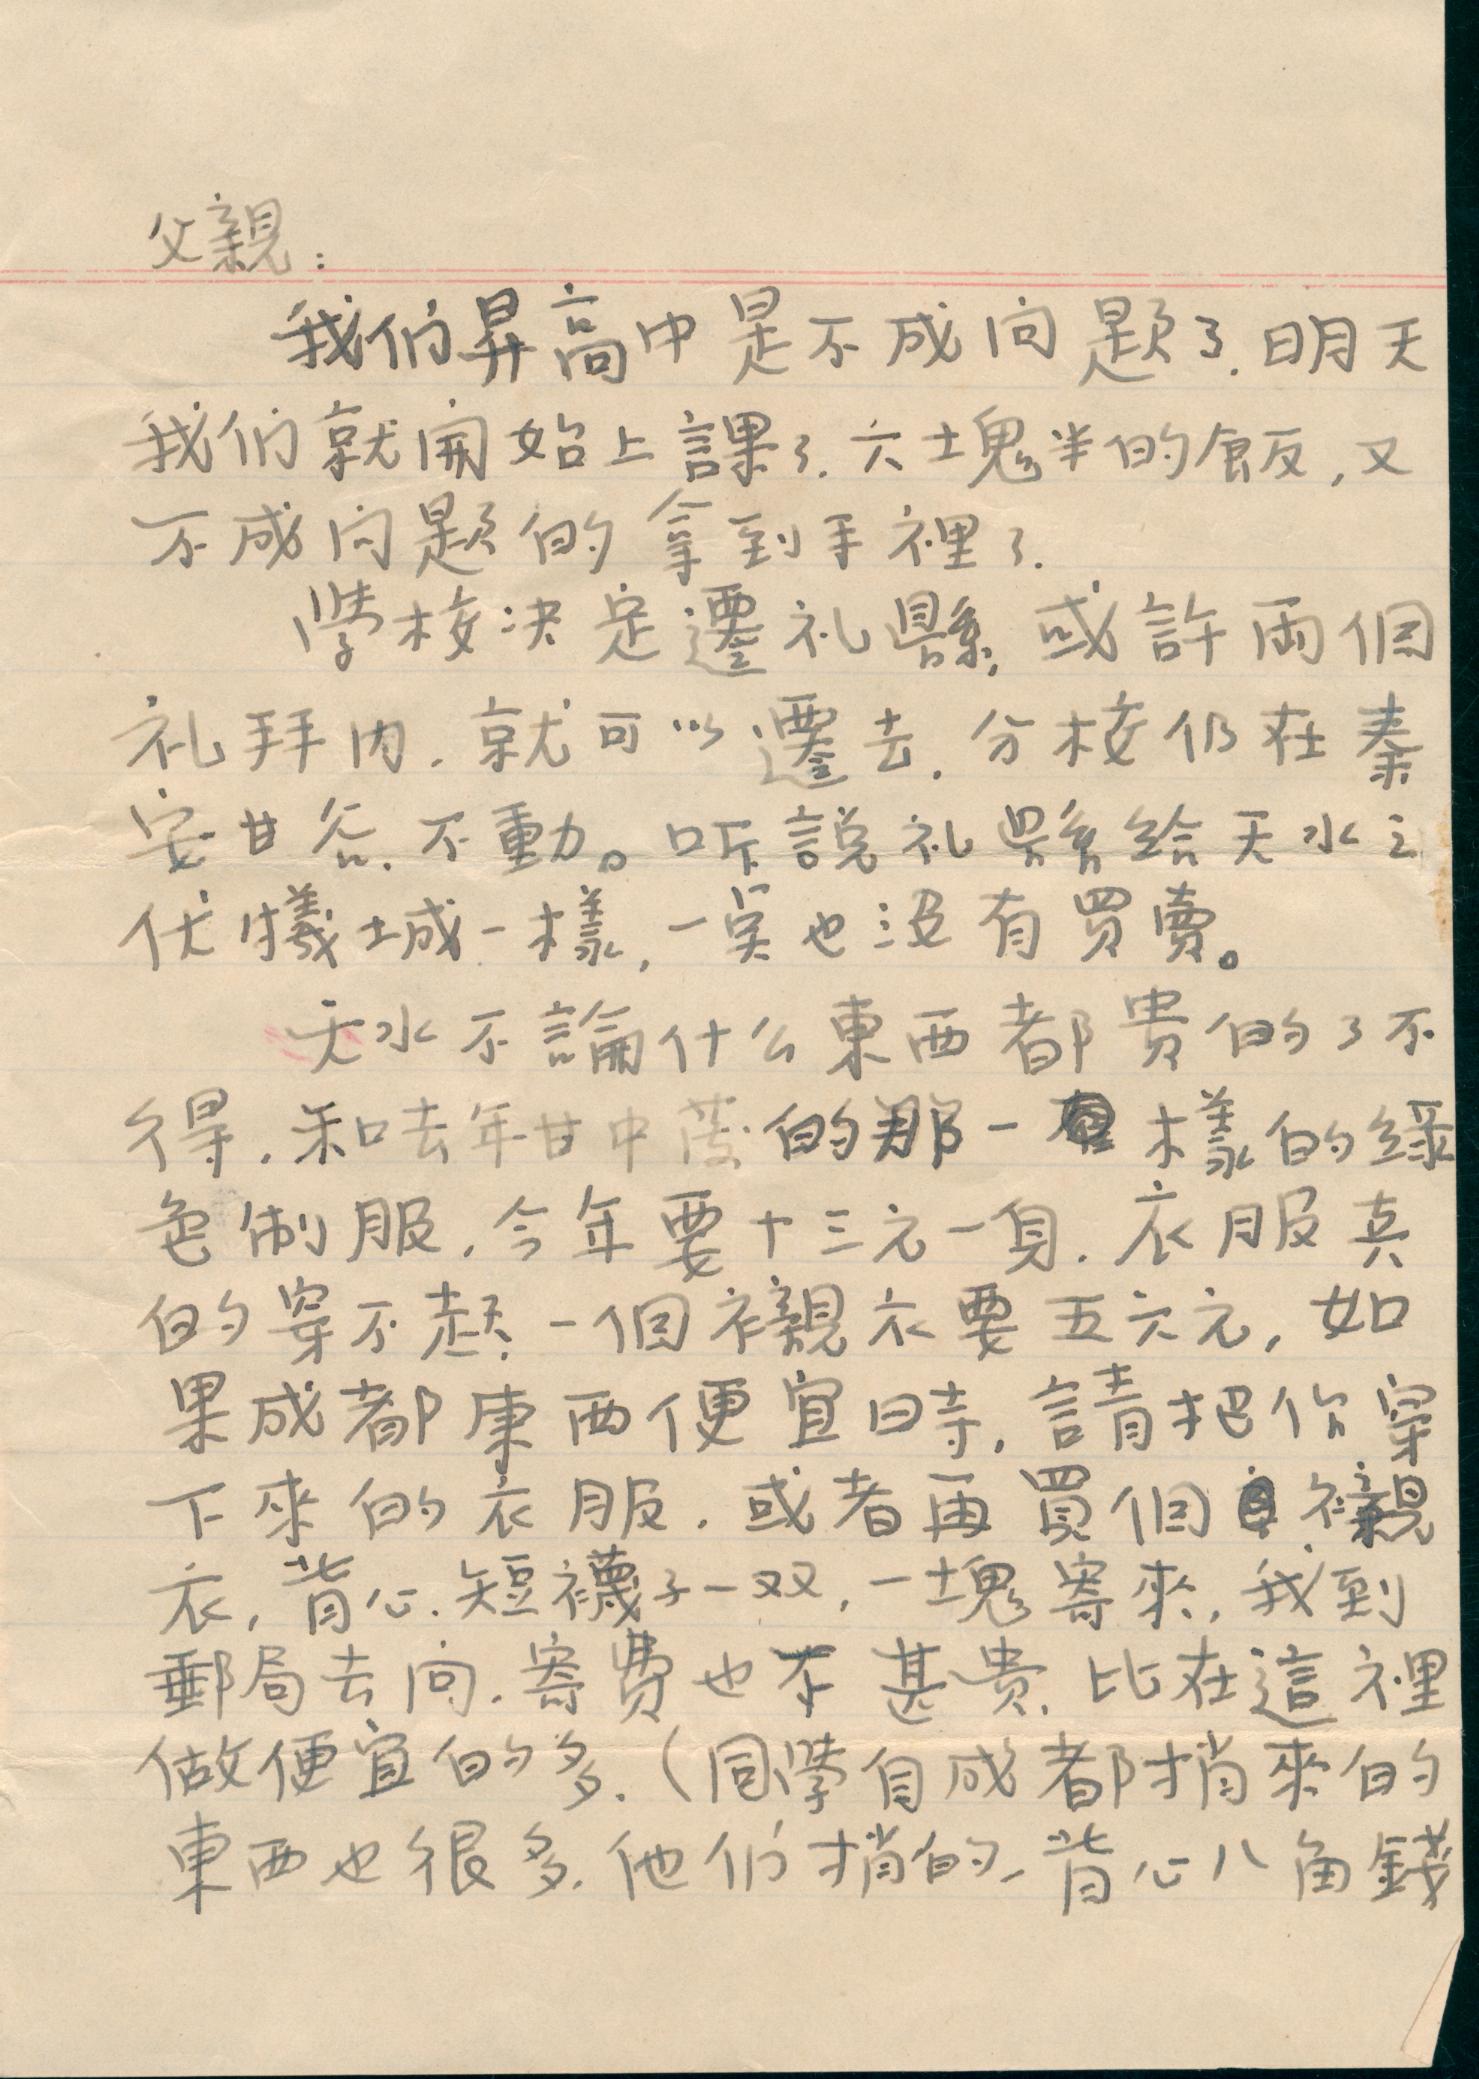 父親：
我们昇高中是不成问題了.明天
我们就開始上課了.六塊半的飯,又
不成问題的拿到手裡了.
學校决定遷礼縣,或許兩個
礼拜内.就可以遷去.分校仍在秦
安甘谷.不動。听說礼縣給天水之
伏犧城一樣,一点也没有買賣。
天水不論什么東西都貴的了不
得.和去年甘中發的那一樣的綠
色制服.今年要十三元一身.衣服真
的穿不起.一個襯衣要五六元,如
果成都東西便宜時,請把你穿
下來的衣服.或者再買個襯
衣,背心.短襪子一双,一塊寄來,我到
郵局去问.寄費也不甚貴.比在這裡
做便宜的多.(同學自成都捎來的
東西也很多.他们捎的,背心八角錢